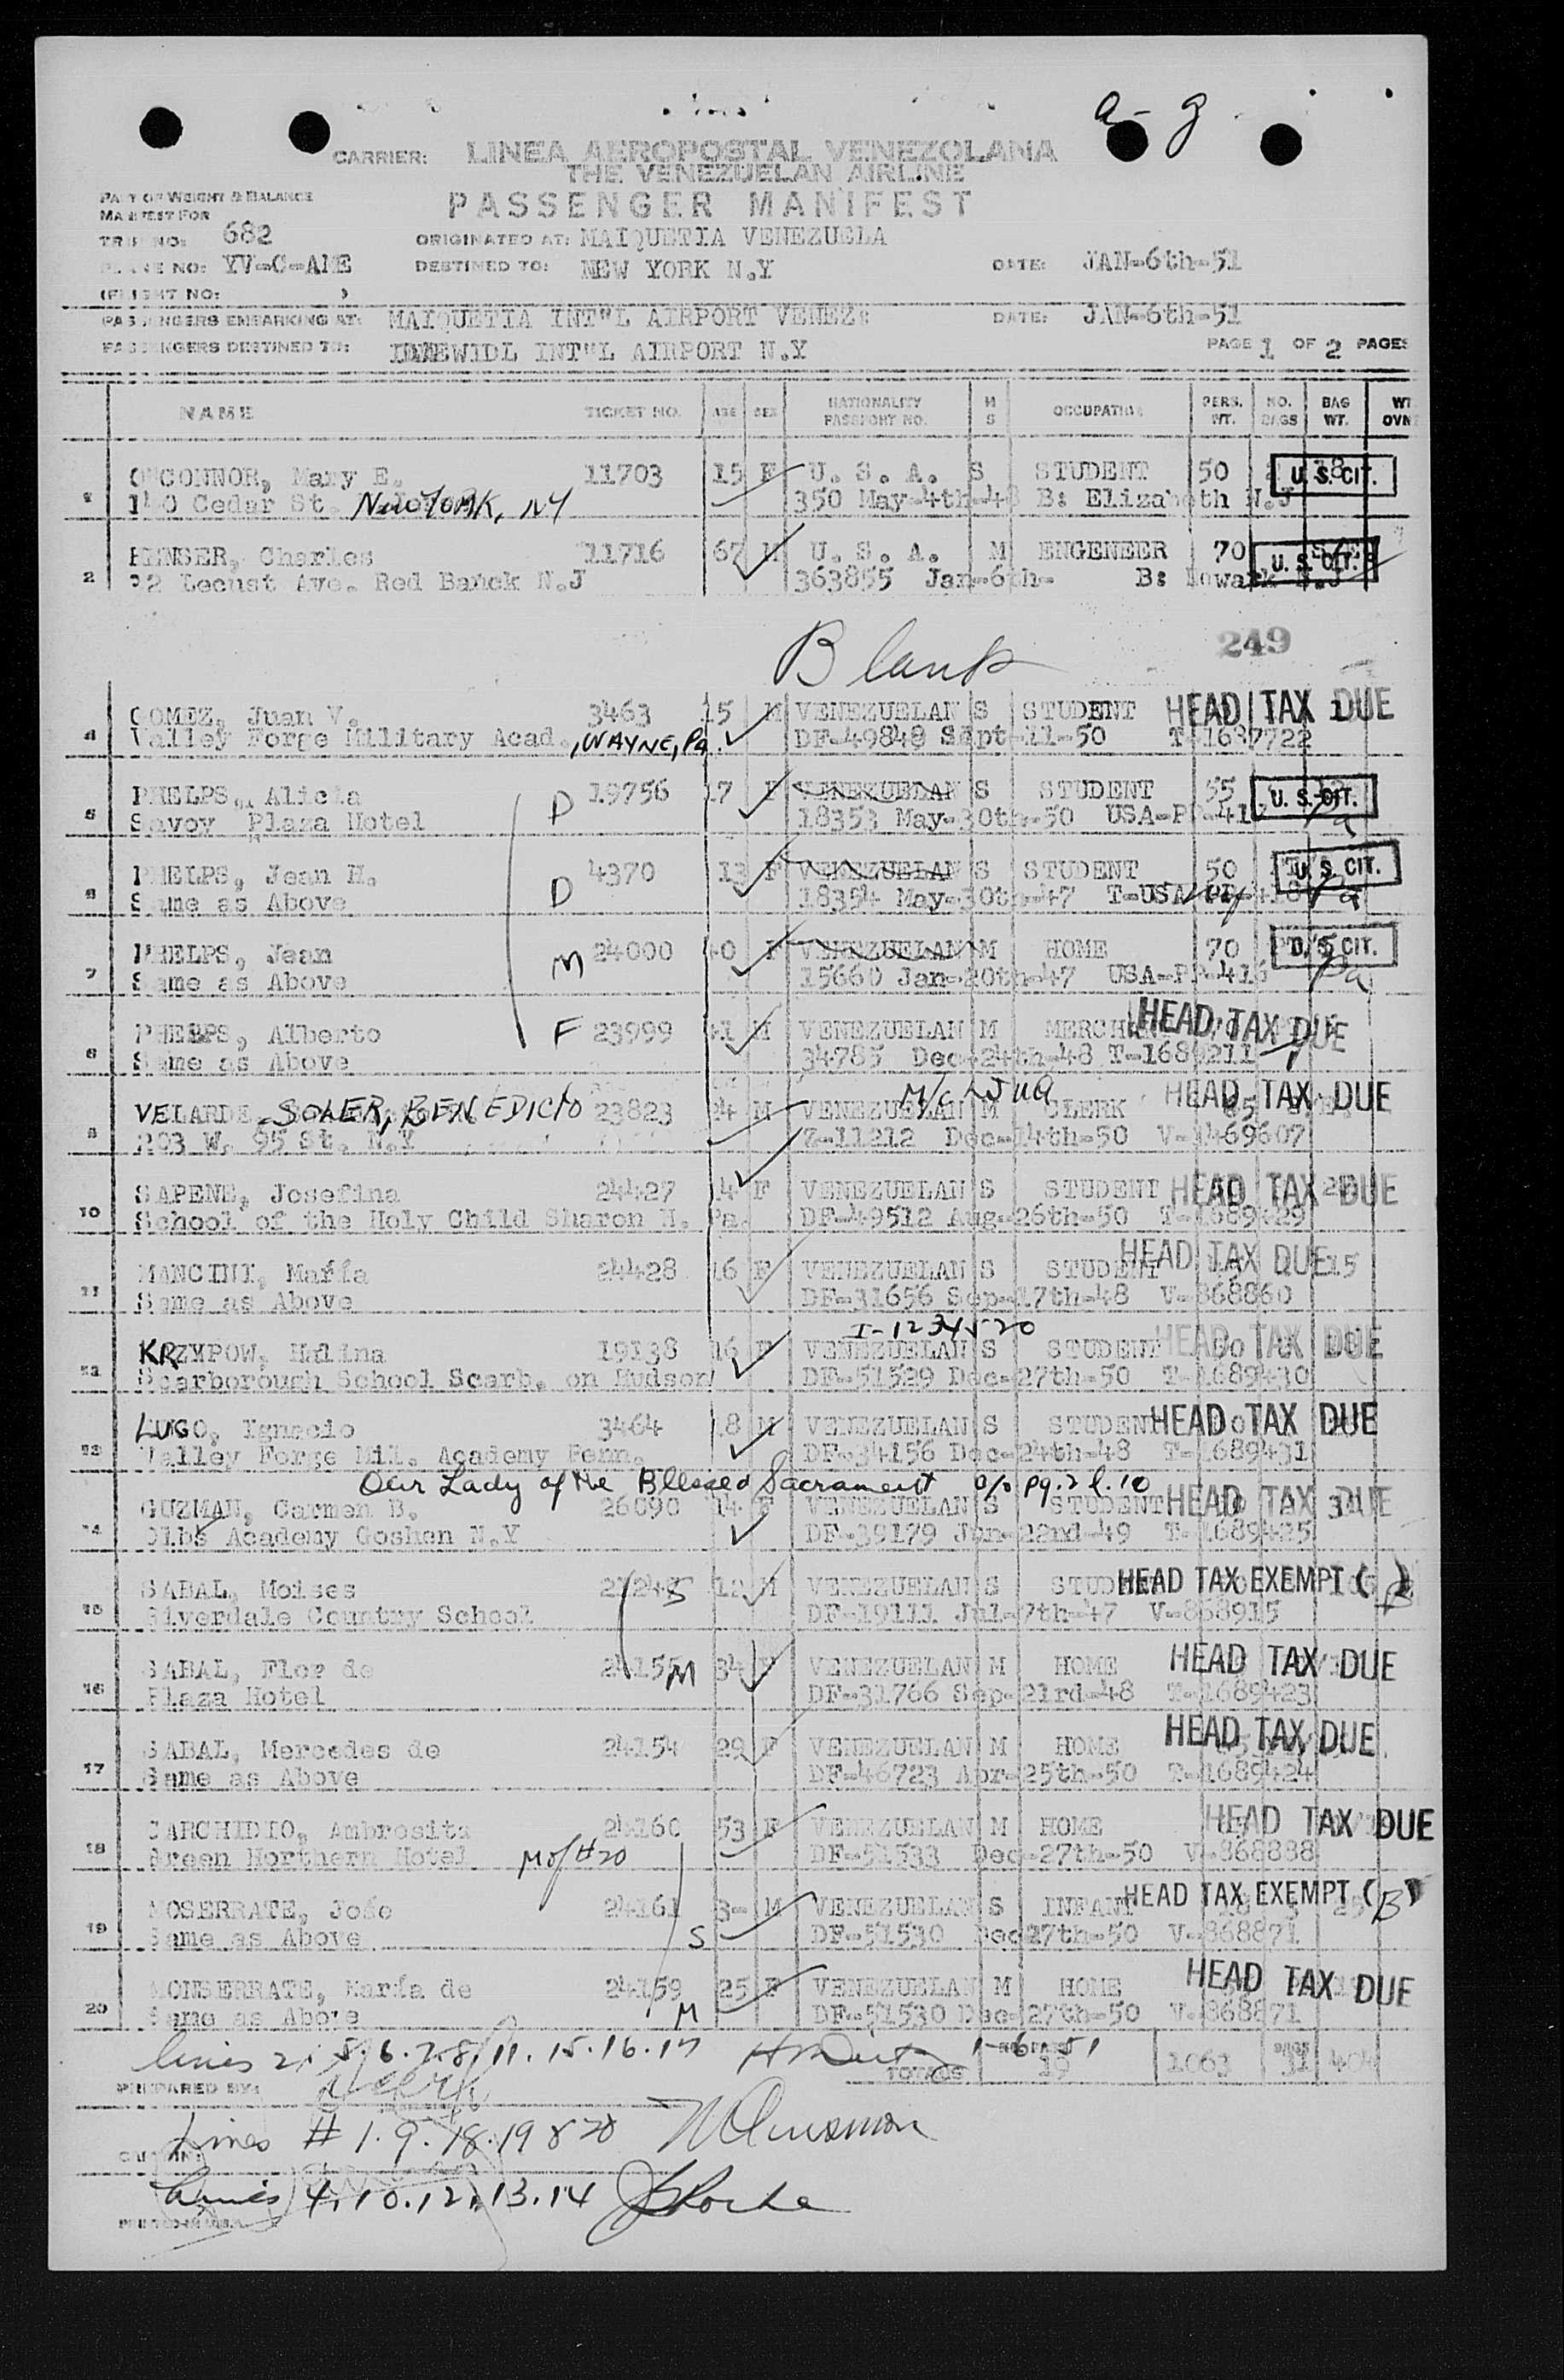 a - g
CARRIER: LINEA AEROPOSTAL VENEZOLANA
THE VENEZUELAN AIRLINE
PASSENGER MANIFEST
PART OF WEIGHT & BALANCE
MANIFEST FOR
TRIP NO: 682 ORIGINATED AT: MAIQUETIA VENEZUELA
PLANE NO: YV-C-AME DESTINED TO: NEW YORK N.Y DATE: JAN-6th-51
(FLIGHT NO: )
PASSENGERS EMBARKING AT: MAIQUETIA INT"L AIRPORT VENEZ: DATE: JAN-6th-51
PASSENGERS DESTINED TO: IDLEWIDL INT"L AIRPORT N.Y PAGE 1 OF 2 PAGES
NAME TICKET NO. AGE SEX NATIONALITY PASSPORT NO. M S OCCUPATION PERS. WT. NO. BAGS BAG WT. WT. OVN
O'CONNOR, Mary E. 11703 15 F U. S. A. S STUDENT 50 18 U. S. CIT.
140 Cedar St. New YORK, NY 350 May-4th-48 B: Elizabeth N.J
HENSER, Charles 11716 67 M U. S. A. M ENGENEER 70 U. S. CIT.
2 32 Locust Ave. Red Banck N.J 363855 Jan-6th- B: Newark N.J
Blank 249
GOMEZ, Juan V. 3463 15 M VENEZUELAN S STUDENT HEAD TAX DUE
4 Valley Forge Military Acad., WAYNE, Pa. DF-49848 Sept-11-50 T-1687722
PHELPS, Alicia D 19756 17 F VENEZUELAN S STUDENT 55 U. S. CIT.
5 Savoy Plaza Hotel 18353 May-30th-50 USA-PP-417 Pa
PHELPS, Jean H. D 4370 13 F VENEZUELAN S STUDENT 50 U. S. CIT.
6 Same as Above 18354 May-30th-47 T-USA-PP-418 Pa
PHELPS, Jean M 24000 40 F VENEZUELAN M HOME 70 U. S. CIT.
7 Same as Above 15660 Jan-20th-47 USA-PP-416 Pa
PHELPS, Alberto F 23999 41 M VENEZUELAN M MERCHANT HEAD TAX DUE
8 Same as Above 34785 Dec-24th-48 T-1689211
VELARDE-SOLER, BENEDICTO 23823 24 M VENEZUELAN M CLERK 65 HEAD TAX DUE
203 W. 95 St. N.Y Z-11212 Dec-14th-50 V-1469607
SAPENE, Josefina 24427 14 F VENEZUELAN S STUDENT HEAD TAX DUE
10 School of the Holy Child Sharon H. Pa. DF-49512 Aug-26th-50 T-1689429
MANCINI, María 24428 16 F VENEZUELAN S STUDENT HEAD TAX DUE 15
11 Same as Above DF-31656 Sep-17th-48 V-868860
I-1234520
KRZYPOW, Halina 19138 16 F VENEZUELAN S STUDENT HEAD TAX DUE
12 Scarborough School Scarb. on Hudson DF-51529 Dec-27th-50 T-1689430
LUGO, Ignacio 3464 18 M VENEZUELAN S STUDENT HEAD TAX DUE
13 Valley Forge Mil. Academy Penn. DF-34156 Dec-24th-48 T-1689431
Our Lady of the Blessed Sacrament o/o pg. 2 l. 10
GUZMAN, Carmen B. 26090 14 F VENEZUELAN S STUDENT HEAD TAX DUE
14 Olbs Academy Goshen N.Y DF-39179 Jun-22nd-49 T-1689425
SABAL, Moises S 12 M VENEZUELAN S STUDENT HEAD TAX EXEMPT (B)
15 Riverdale Country School DF-19111 Jul-7th-47 V-868915
SABAL, Flor de 24155 M 34 F VENEZUELAN M HOME HEAD TAX DUE
16 Plaza Hotel DF-31766 Sep-21rd-48 T-1689423
SABAL, Mercedes de 24154 29 F VENEZUELAN M HOME HEAD TAX DUE
17 Same as Above DF-46723 Apr-25th-50 T-1689424
CARCHIDIO, Ambrosita 24160 53 F VENEZUELAN M HOME HEAD TAX DUE
18 Green Northern Hotel M of #20 DF-51533 Dec-27th-50 V-868888
MOSERRATE, José 24161 3- M VENEZUELAN S INFANT HEAD TAX EXEMPT (B)
19 Same as Above S DF-51530 Dec27th-50 V-868871
MONSERRATE, María de 24159 25 F VENEZUELAN M HOME HEAD TAX DUE
20 Same as Above M DF-51530 Dec-27th-50 V-868871
lines 2. 5. 6. 7. 8. 11. 15. 16. 17 1-6-51
PREPARED BY: TOTALS 19 1063 BAGS 31 404
Lines # 1. 9. 18. 19 & 20
Lines 4. 10. 12. 13. 14
PRINTED IN U.S.A.